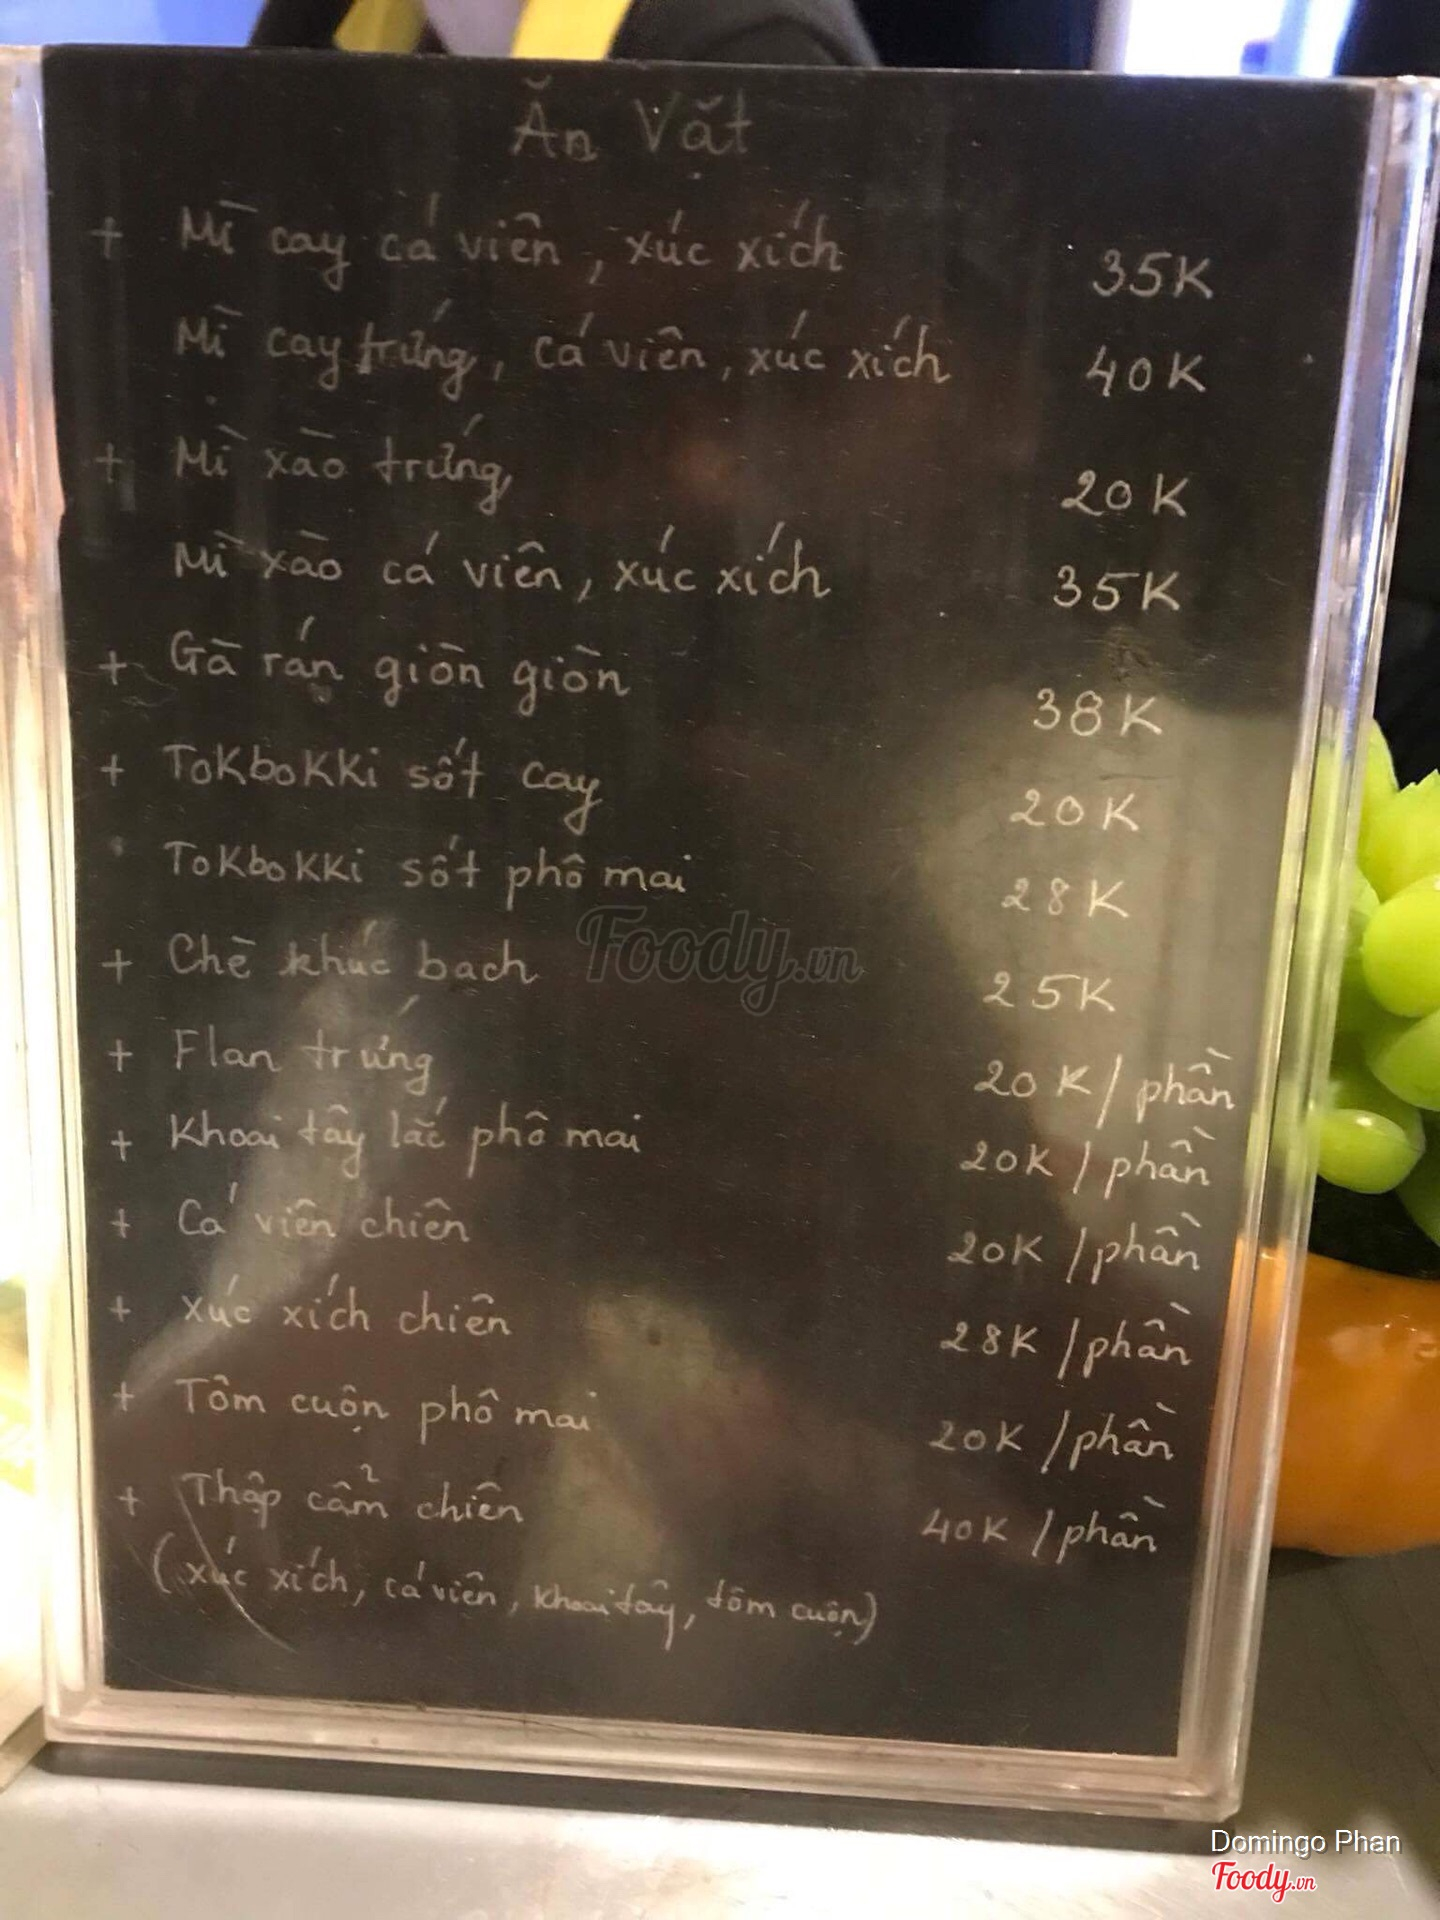 Ăn Vặt
+ Mì cay cá viên, xúc xích 35K
Mì cay trứng, cá viên, xúc xích 40K
+ Mì xào trứng 20K
Mì xào cá viên, xúc xích 35K
+ Gà rán giòn giòn 38K
+ Tokbokki sốt cay 20K
Tokbokki sốt phô mai 28K
+ Chè khúc bạch 25K
+ Flan trứng 20K/phần
+ Khoai tây lắc phô mai 20K/phần
+ Cá viên chiên 20K/phần
+ Xúc xích chiên 28K/phần
+ Tôm cuộn phô mai 20K/phần
+ Thập cẩm chiên 40K/phần
(xúc xích, cá viên, khoai tây, tôm cuộn)
Foody.vn
Domingo Phan
Foody.vn